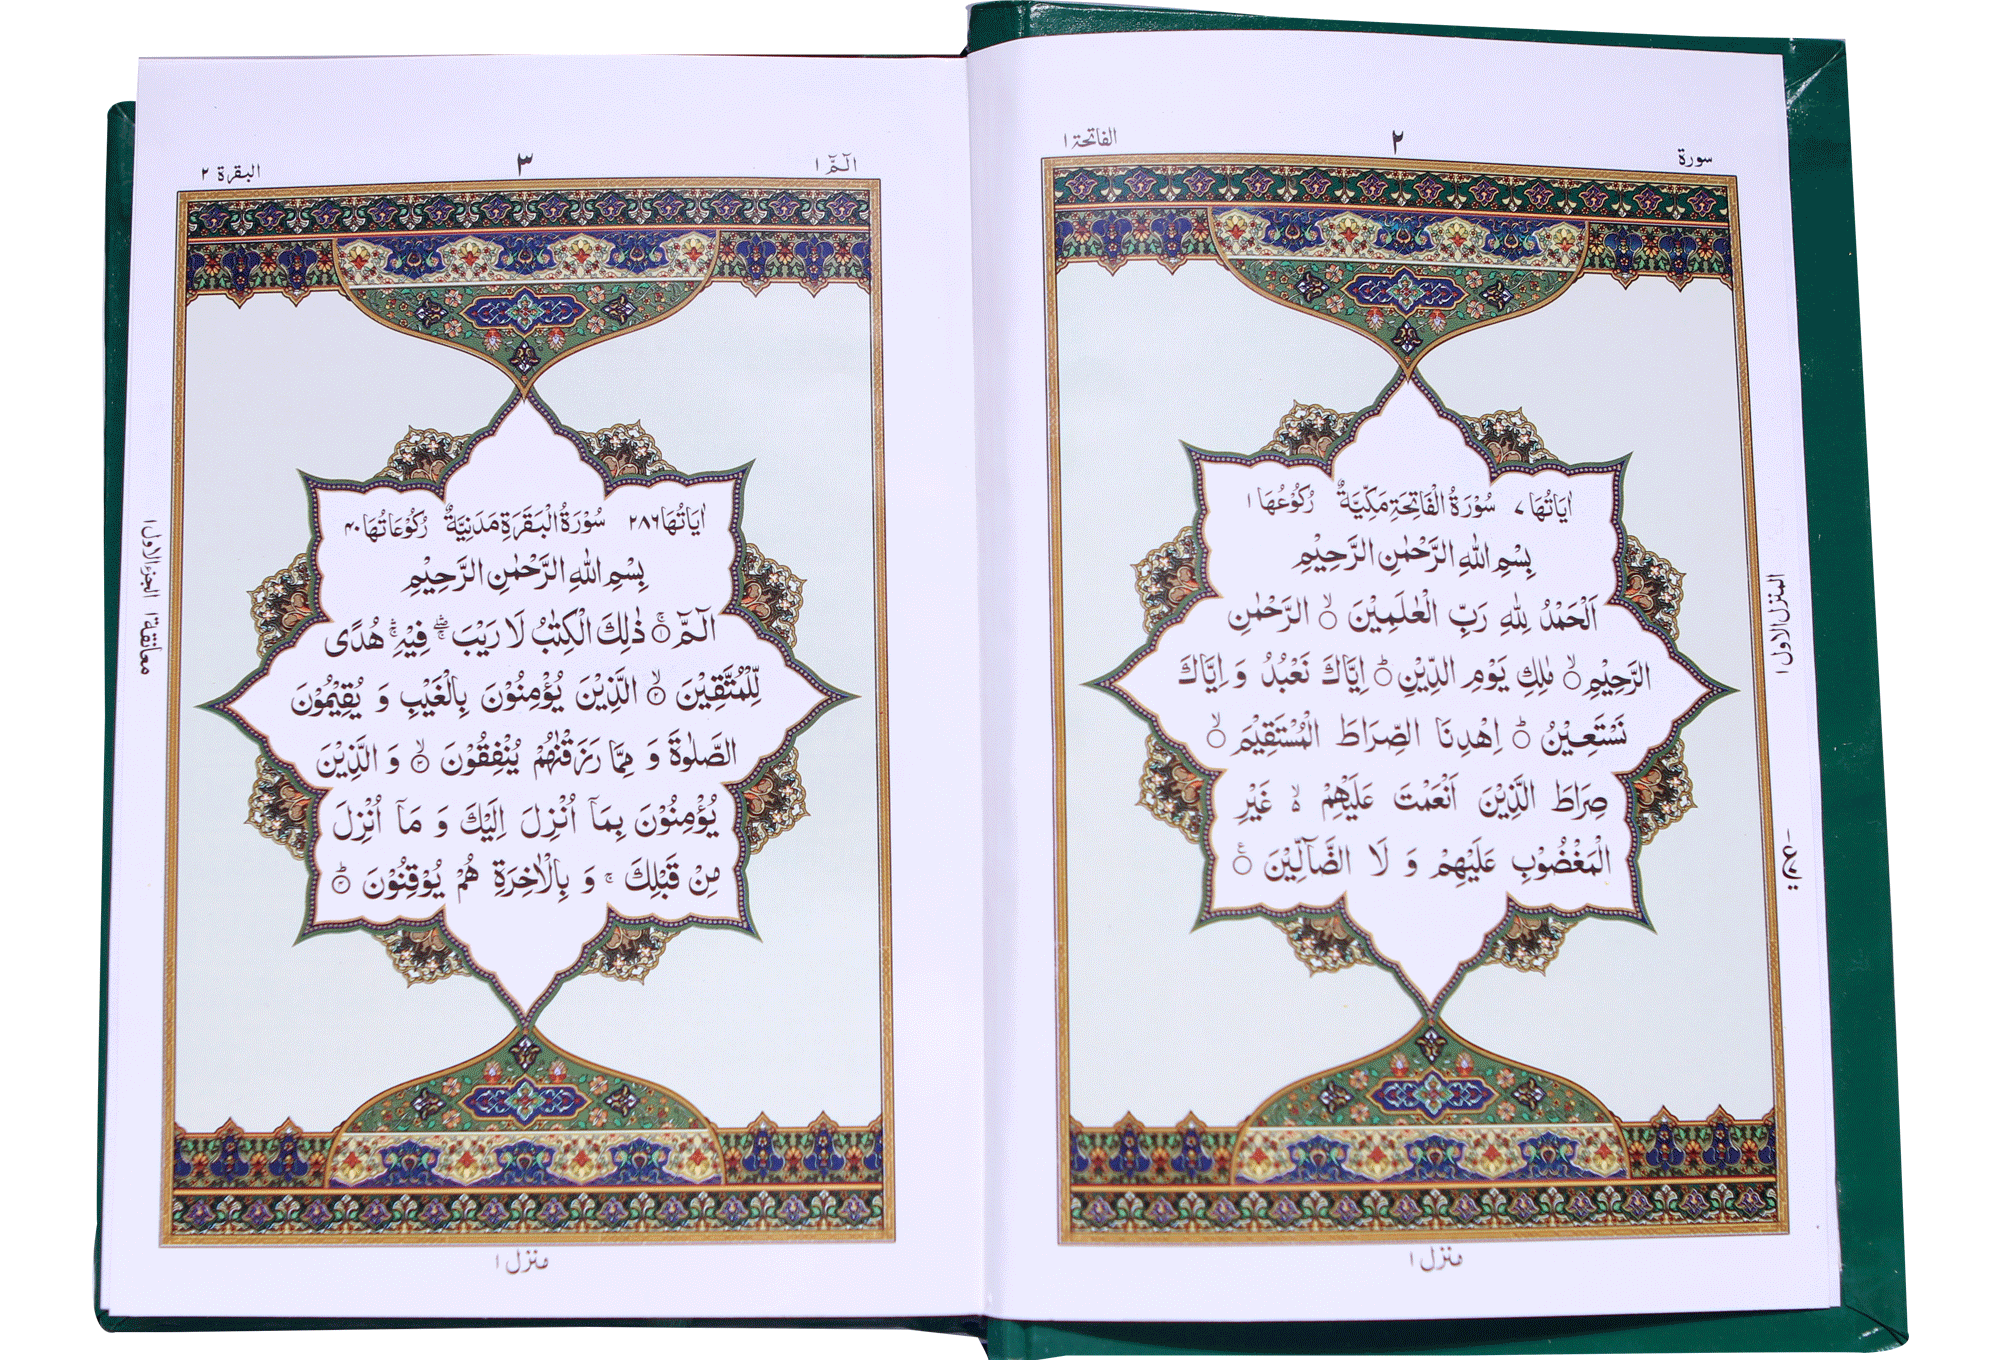 سورة
٢
الفاتحة ١
اٰيَاتُهَا ٧ سُوْرَةُ الْفَاتِحَةِ مَكِّيَّةٌ رُكُوْعُهَا ١
بِسْمِ اللهِ الرَّحْمٰنِ الرَّحِيْمِ
اَلْحَمْدُ لِلّٰهِ رَبِّ الْعٰلَمِيْنَ ۙ الرَّحْمٰنِ
الرَّحِيْمِ ۙ مٰلِكِ يَوْمِ الدِّيْنِ ؕ اِيَّاكَ نَعْبُدُ وَ اِيَّاكَ
نَسْتَعِيْنُ ؕ اِهْدِنَا الصِّرَاطَ الْمُسْتَقِيْمَ ۙ
صِرَاطَ الَّذِيْنَ اَنْعَمْتَ عَلَيْهِمْ ۙ۬ غَيْرِ
الْمَغْضُوْبِ عَلَيْهِمْ وَ لَا الضَّآلِّيْنَ
المنزل الاول ١
منزل ١
الٓمّٓ ١
٣
البقرة ٢
اٰيَاتُهَا ٢٨٦ سُوْرَةُ الْبَقَرَةِ مَدَنِيَّةٌ رُكُوْعَاتُهَا ٤٠
بِسْمِ اللهِ الرَّحْمٰنِ الرَّحِيْمِ
الٓمّٓ ۚ١ ذٰلِكَ الْكِتٰبُ لَا رَيْبَ ۛۖ فِيْهِ ۛۚ هُدًى
لِّلْمُتَّقِيْنَ ۙ٢ الَّذِيْنَ يُؤْمِنُوْنَ بِالْغَيْبِ وَ يُقِيْمُوْنَ
الصَّلٰوةَ وَ مِمَّا رَزَقْنٰهُمْ يُنْفِقُوْنَ ۙ٣ وَ الَّذِيْنَ
يُؤْمِنُوْنَ بِمَآ اُنْزِلَ اِلَيْكَ وَ مَآ اُنْزِلَ
مِنْ قَبْلِكَ ۚ وَ بِالْاٰخِرَةِ هُمْ يُوْقِنُوْنَ ؕ٤
معانقة ١ الجزء الاول ١
منزل ١